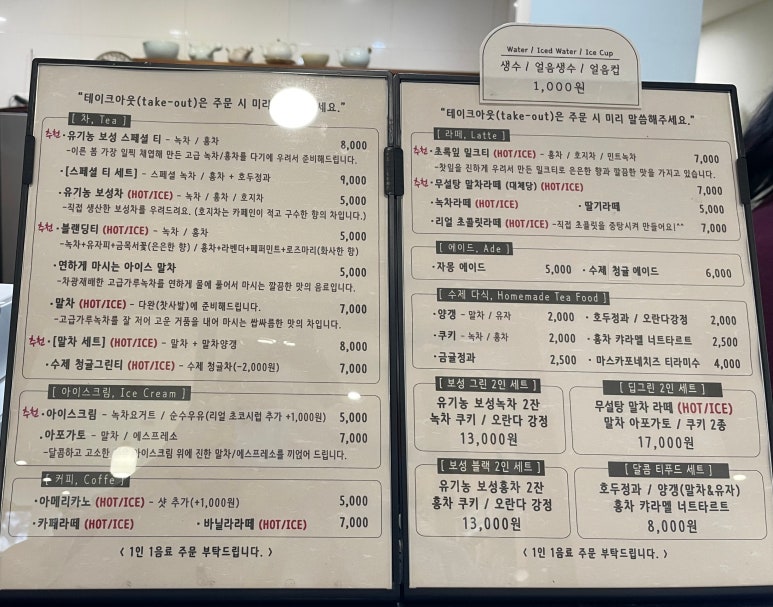 "테이크아웃(take-out)은 주문 시 미리 요."
[ 차, Tea ]
추천 · 유기농 보성 스페셜 티 - 녹차 / 홍차 8,000
-이른 봄 가장 일찍 채엽해 만든 고급 녹차/홍차를 다기에 우려서 준비해드립니다.
· [스페셜 티 세트] - 스페셜 녹차 / 홍차 + 호두정과 9,000
· 유기농 보성차 (HOT/ICE) - 녹차 / 홍차 / 호지차 5,000
-직접 생산한 보성차를 우려드려요. (호지차는 카페인이 적고 구수한 향의 차입니다.)
추천 · 블랜딩티 (HOT/ICE) - 녹차 / 홍차 5,000
-녹차+유자피+금목서꽃(은은한 향) / 홍차+라벤더+페퍼민트+로즈마리(화사한 향)
· 연하게 마시는 아이스 말차 5,000
-차광재배한 고급가루녹차를 연하게 물에 풀어서 마시는 깔끔한 맛의 음료입니다.
· 말차 (HOT/ICE) - 다완(찻사발)에 준비해드립니다. 7,000
-고급가루녹차를 잘 저어 고운 거품을 내어 마시는 쌉싸름한 맛의 차입니다.
추천 · [말차 세트] (HOT/ICE) - 말차 + 말차양갱 8,000
· 수제 청귤그린티 (HOT/ICE) - 수제 청귤차(-2,000원) 7,000
[ 아이스크림, Ice Cream ]
추천 · 아이스크림 - 녹차요거트 / 순수우유(리얼 초코시럽 추가 +1,000원) 5,000
· 아포가토 - 말차 / 에스프레소 7,000
-달콤하고 고소한 아이스크림 위에 진한 말차/에스프레소를 끼얹어 드립니다.
커피, Coffe ]
· 아메리카노 (HOT/ICE) - 샷 추가(+1,000원) 5,000
· 카페라떼 (HOT/ICE) · 바닐라라떼 (HOT/ICE) 7,000
< 1인 1음료 주문 부탁드립니다. >
Water / Iced Water / Ice Cup
생수 / 얼음생수 / 얼음컵
1,000원
"테이크아웃(take-out)은 주문 시 미리 말씀해주세요."
[ 라떼, Latte ]
추천 · 초록잎 밀크티 (HOT/ICE) - 홍차 / 호지차 / 민트녹차 7,000
-찻잎을 진하게 우려서 만든 밀크티로 은은한 향과 깔끔한 맛을 가지고 있습니다.
추천 · 무설탕 말차라떼 (대체당) (HOT/ICE) 7,000
· 녹차라떼 (HOT/ICE) · 딸기라떼 5,000
· 리얼 초콜릿라떼 (HOT/ICE) -직접 초콜릿을 중탕시켜 만들어요!^^ 7,000
[ 에이드, Ade ]
· 자몽 에이드 5,000 · 수제 청귤 에이드 6,000
[ 수제 다식, Homemade Tea Food ]
· 양갱 - 말차 / 유자 2,000 · 호두정과 / 오란다강정 2,000
· 쿠키 - 녹차 / 홍차 2,000 · 홍차 캬라멜 너트타르트 2,500
· 금귤정과 2,500 · 마스카포네치즈 티라미수 4,000
[ 보성 그린 2인 세트 ]
유기농 보성녹차 2잔
녹차 쿠키 / 오란다 강정
13,000원
[ 딥그린 2인 세트 ]
무설탕 말차 라떼 (HOT/ICE)
말차 아포가토 / 쿠키 2종
17,000원
[ 보성 블랙 2인 세트 ]
유기농 보성홍차 2잔
홍차 쿠키 / 오란다 강정
13,000원
[ 달콤 티푸드 세트 ]
호두정과 / 양갱(말차&유자)
홍차 캬라멜 너트타르트
8,000원
< 1인 1음료 주문 부탁드립니다. >